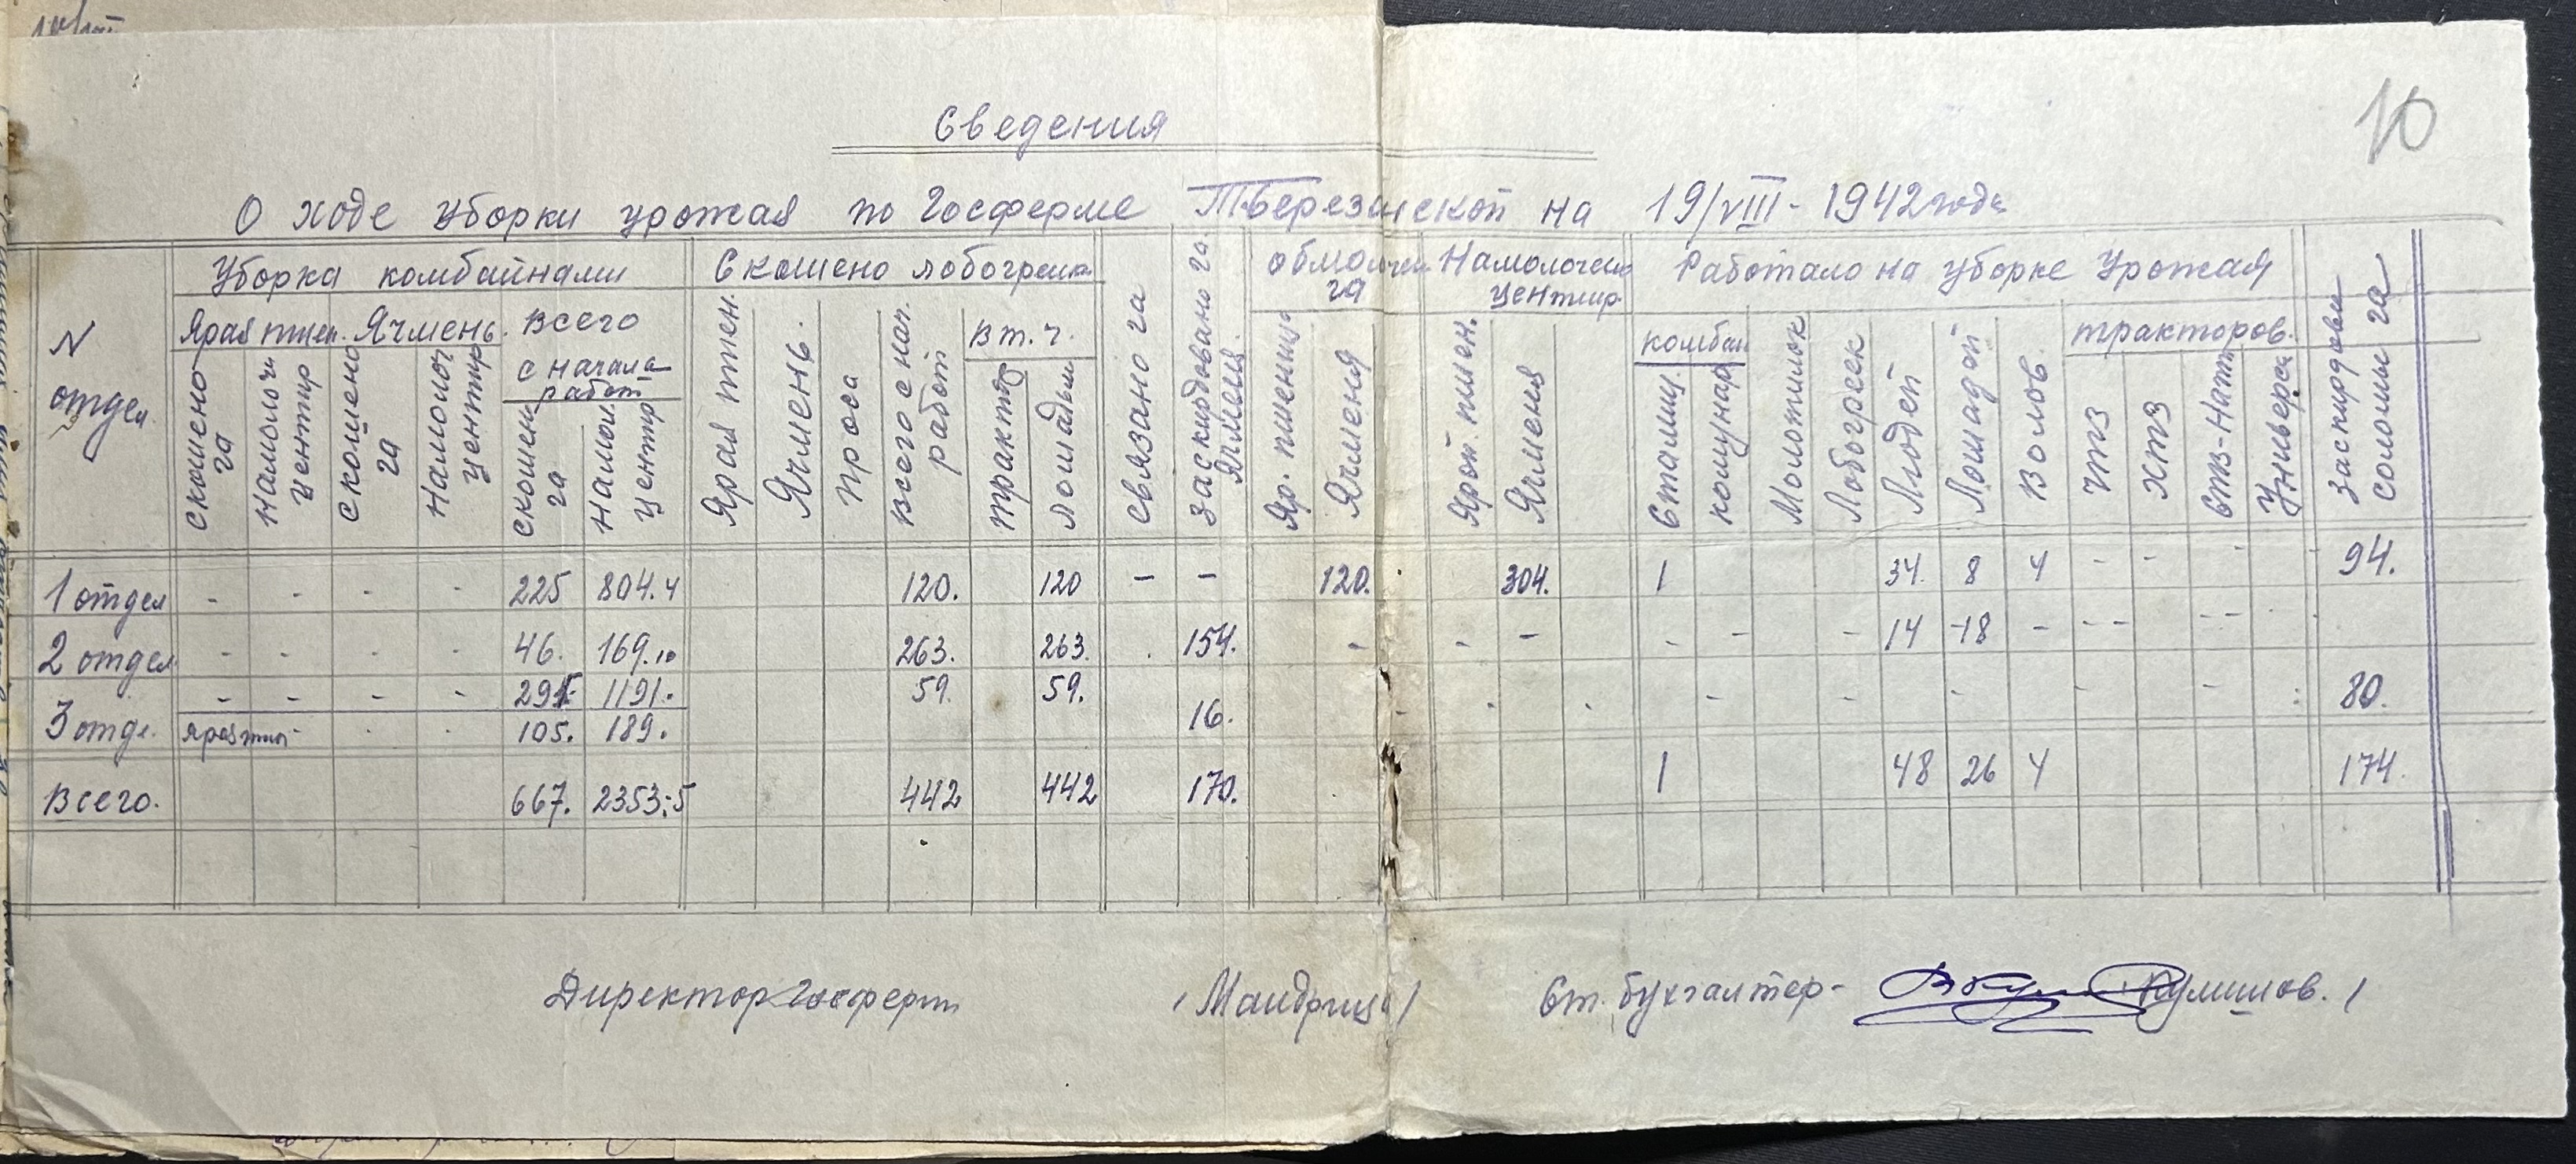 10
Сведения
О ходе уборки урожая по Госферме Т.Березанской на 19/VIII - 1942 года
N отдел.
Уборка комбайнами
Скошено лобогрейк.
Связано га
Заскирдовано га. Ячменя.
обмолочен га
Намолочено центнр.
Работало на уборке урожая
Заскирдован соломы га
Ярая пшен. Ячмень. Всего с начала работ
Ярая пшен. Ячмень. Проса Всего с нач. работ В т. ч.
Яр. пшениц. Ячменя
Ярой. пшен. Ячменя
комбай Молотилок Лобогреек Людей Лошадей Волов. тракторов.
Скошено га Намолоч центнр Скошено га Намолоч центнр Скошен га Намол. центнр
трактор лошадьм
Сталиц. комунар
ЧТЗ ХТЗ СТЗ-Нати Универсал
1 отдел - - - - 225 804.4 120. 120 - - 120. 304. 1 34. 8 4 - - - - 94.
2 отдел - - - - 46. 169.10 263. 263. . 154. - - - - - - 14 -18 - - - - -
- - - - 295 1191. 59. 59. 16. - - - - - - 80.
3 отде. Ярая пше - - 105. 189.
Всего. 667. 2353.5 442 442 170. 1 48 26 4 174.
Директор Госферм / Мандрица / Ст. бухгалтер -